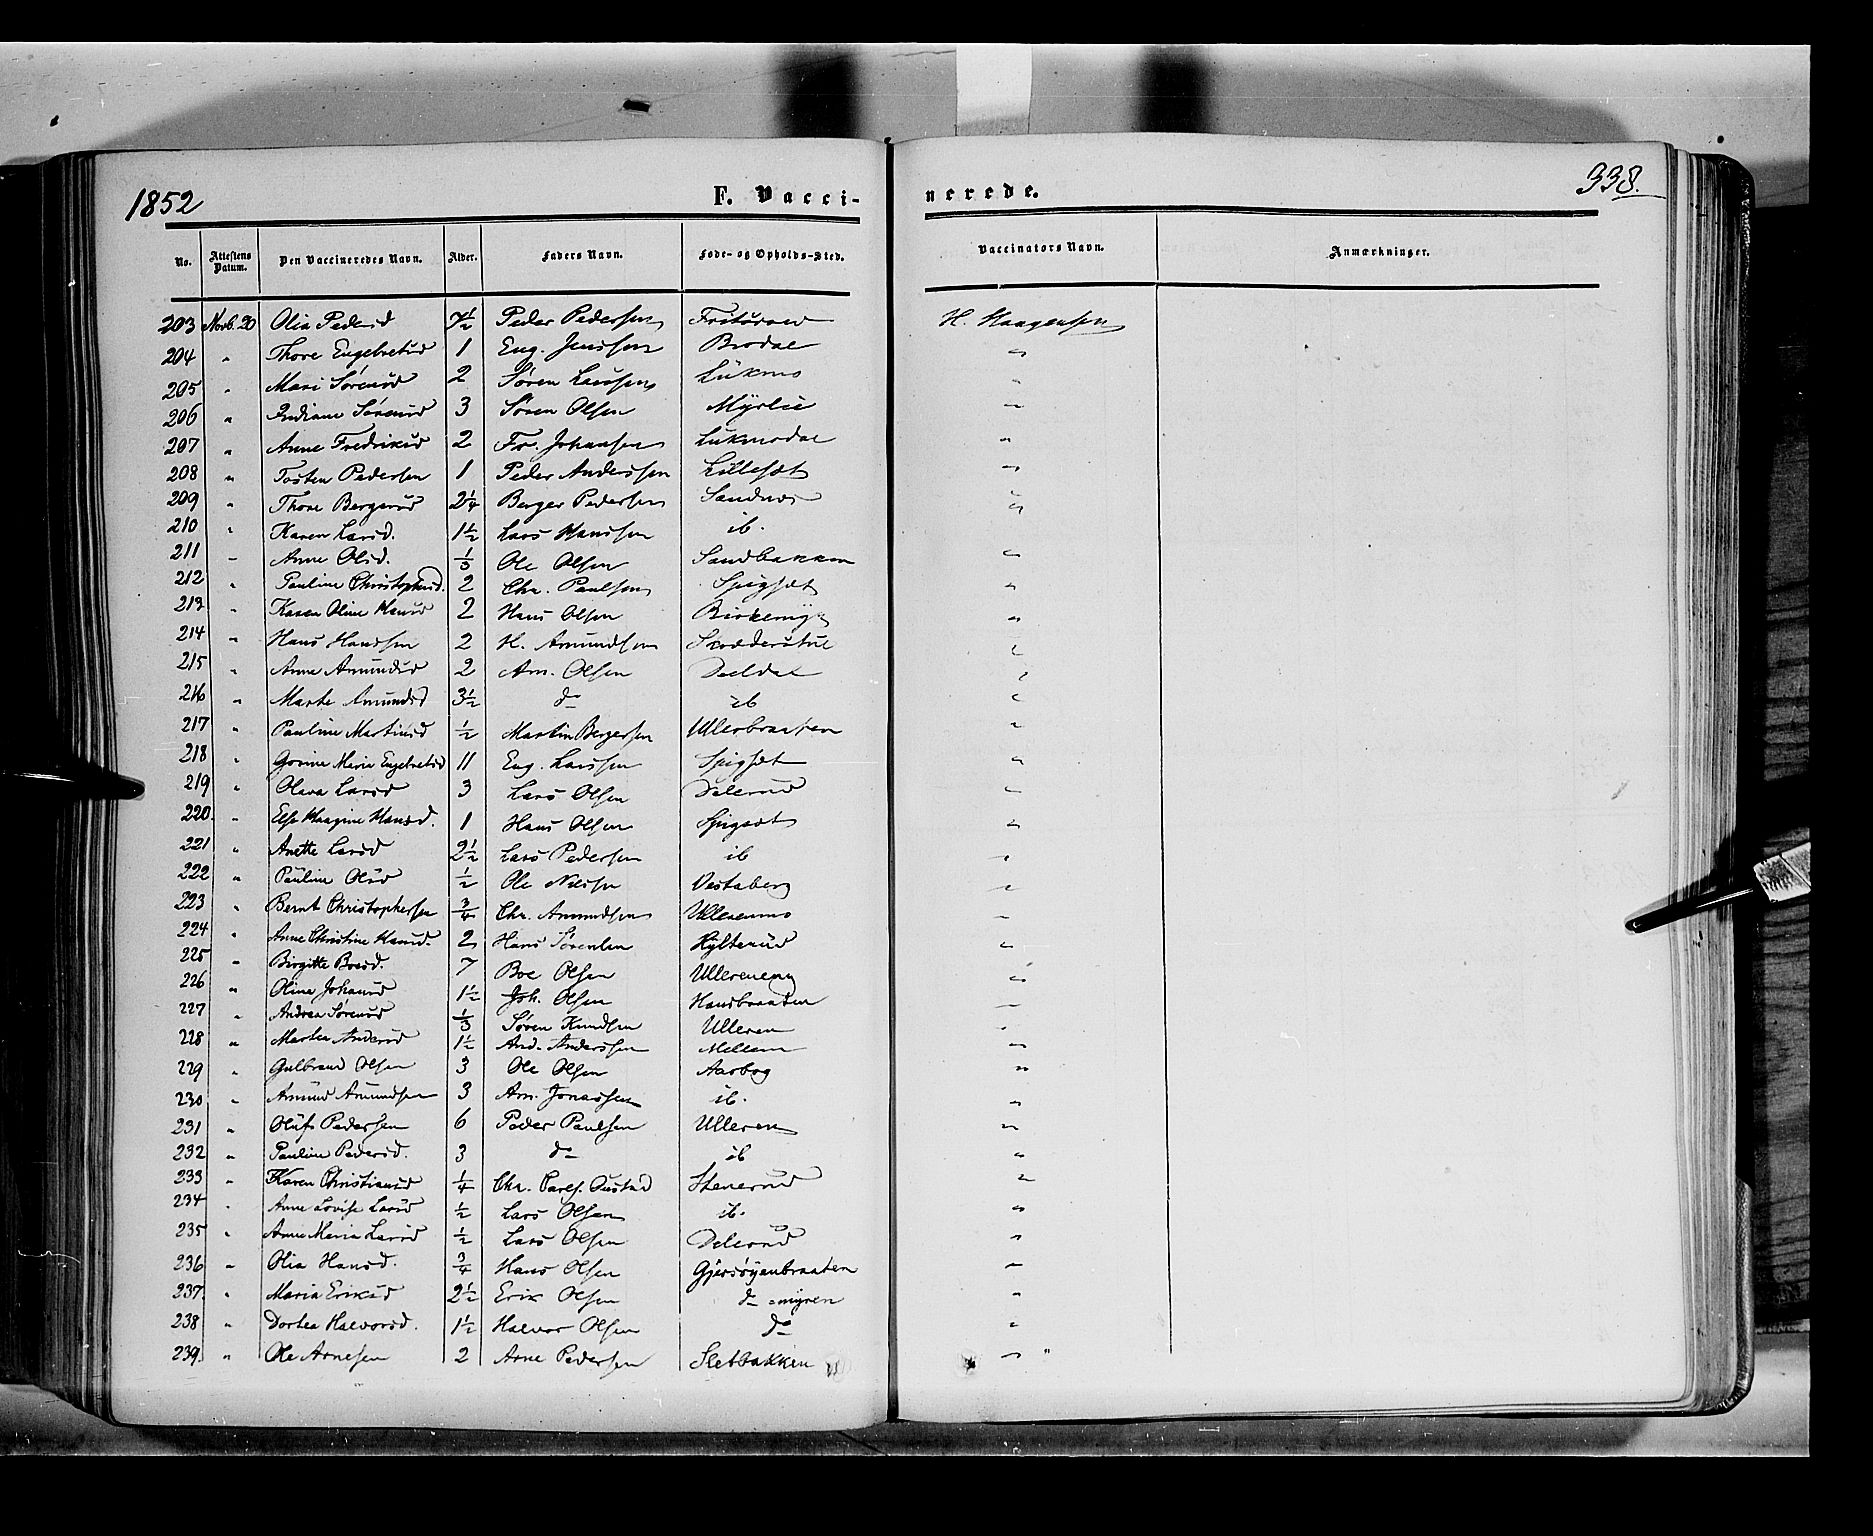 1852 F. Vaccinerede. 338.
No. Attestens Datum. Den Vaccineredes Navn. Alder. Faders Navn. Føde- og Opholds-Sted. Vaccinators Navn. Anmærkninger.
203 Novb. 20 Olia Pedersd 7½ Peder Pedersen H. Haagensen
204 " Thore Engebretsd 1 Eng. Jenssen Brodal "
205 " Mari Sørensd 2 Søren Larssen Lükmo "
206 " Søren Olsen 3 Myrlie "
207 " Anne Fredriksd 2 Fr. Johansen Lukmodal "
208 " Tosten Pedersen 1 Peder Anderssen Lillesæt "
209 " Thore Bergersd 2¼ Berger Pedersen Sandnæs "
210 " Karen Larsd. 1½ Lars Hanssen ib. "
211 " Anne Olsd. ⅓ Ole Olsen Sandbakken "
212 " Pauline Christophersd. 2 Chr. Paulsen Spigsæt "
213 " Karen Oline Hansd 2 Hans Olsen "
214 " Hans Hanssen 2 H. Amundsen Skodderstue "
215 " Anne Amundsd 2 Am. Olsen Deldal "
216 " Marte Amundsd 3½ do ib "
217 " Pauline Martinsd ½ Martin Bergersen Ullerbraaten "
218 " Gorine Maria Engebretsd 11 Eng. Larssen Spigsæt "
219 " Olava Larsd 3 Lars Olsen Delerud "
220. " Else Haagine Hansd. 1 Hans Olsen Spigsæt "
221 " Anette Larsd 2½ Lars Pedersen ib "
222 " Pauline Olsd ½ Ole Nilsen Vestaberg "
223 " Bernt Christophersen ¾ Chr. Amundsen Ullerenmo "
224 " Anne Christine Hansd. 2 Hans Sørensen Hylterud "
225 " Birgitte Boesd. 7 Boe Olsen Ullereneng "
226 " Oline Johansd 1½ Joh. Olsen Hansbraaten "
227 " Andrea Sørensd ⅓ Søren Knudsen Ulleren "
228 " Marthea Andersd 1½ And. Anderssen Mellem "
229 " Gulbrand Olsen 3 Ole Olsen Aasbog "
230 " Amund Amundsen 3 Am. Jonassen ib. "
231 " Oluf Pedersen 6 Peder Paulsen Ulleren "
232 " Pauline Pedersd. 3 do ib "
233 " Karen Christiansd ¼ Chr. Carls. Oustad Stenerud "
234 " Anne Lovise Larsd ½ Lars Olsen ib. "
235 " Anne Maria Larsd ½ Lars Olsen Delerud "
236 " Olia Hansd. ¾ Hans Olsen Gjersøyenbraaten "
237 " Maria Eriksd 2½ Erik Olsen do =myren "
238 " Dortea Halvorsd. 1½ Halvor Olsen do "
239. " Ole Arnesen 2 Arne Pedersen Sletbakken "